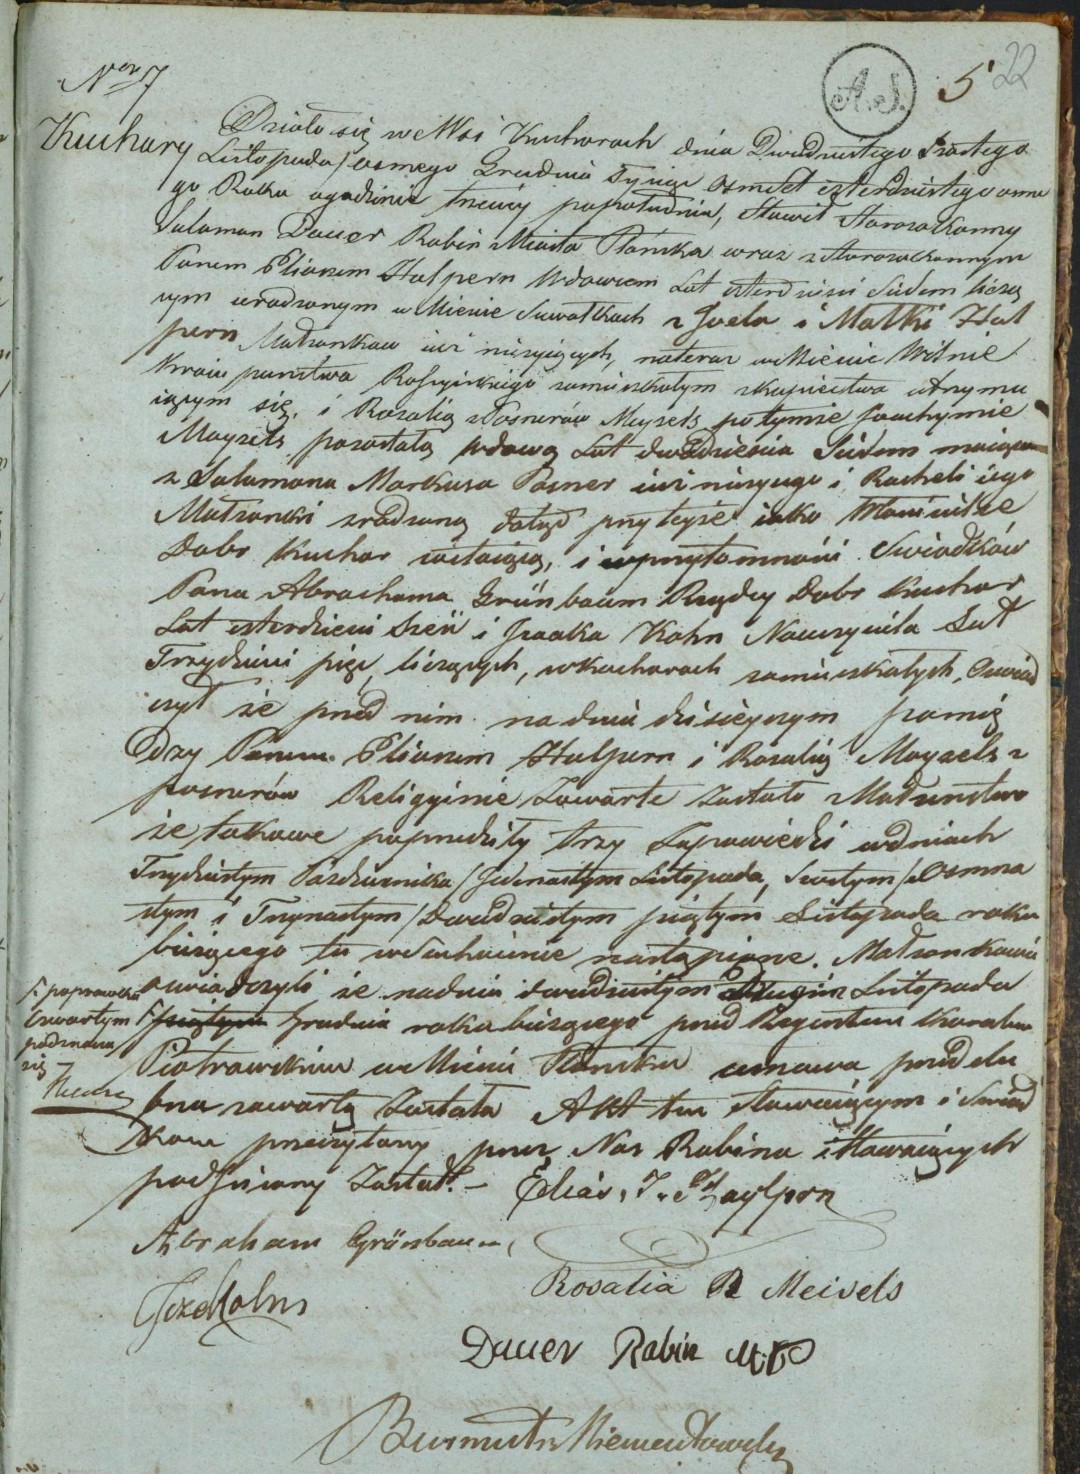 Nro 7
A. S.
5
22
Kuchary
Działo się we Wsi Kucharach dnia Dwudziestego Szóstego
Listopada / osmego Grudnia Tysiąc Osmset czterdziestego osme
go Roku o godzinie trzeciey popołudniu, Stawił Starozakonny
Salamon Dauer Rabin Miasta Płońska wraz z Starozakonnym
Panem Eliaszem Halpern Wdowcem Lat czterdzieści Siedem liczą
cym urodzonym w Mieście Suwałkach z Joela i Małki Hal
pern Małżonków iuż nieżyiących, na teraz w Mieście Wilnie
Kraiu państwa Rossyiskiego zamieszkałym z kupiectwa utrzymu
iącym się, i Rozalią z Posnerów Meyzels po łymie Joachymie
Mayzels pozostałą wdową Lat dwadzieścia Siedem maiącą
z Salamona Markusa Posner iuż nieżyiącego i Racheli iego
Małżonki zrodzoną dotąd przy teyże iako Właścicielce
Dobr Kuchar zostaiącą, i w przytomności Swiadków
Pana Abrachama Grünbaum Rządcy Dobr Kuchar
Lat czterdzieści Sześć i Izaaka Kohn Nauczyciela Lat
Trzydzieści pięć liczących, w Kucharach zamieszkałych, Oswiad
czył że przed nim na dniu dzisieyszym pomię
dzy Panem Eliaszem Halpern i Rozalią Mayzels z
posnerów Religyinie Zawarte zostało Małżeństwo
że takowe poprzedziły trzy Zapowiedzi w dniach
Trzydziestym Pazdziernika / Jedenastym Listopada, Szóstym / Osmna
stym i Trzynastym / Dwudziestym piątym Listopada roku
bieżącego tu w Kucharach nastąpione. Małżonkowie
oswiadczyli że na dniu dwudziestym Drugim Listopada
piątym Grudnia roku bieżącego przed Regentem
Piotrowskim w Mieście Płońsku umowa przedślu
bna zawartą Została Akt ten Stawaiącym i Swiad
kom przeczytany przez Nas Rabina i Stawaiących
podpisany Został. –
poprawka
Czwartym
podznacza
się –
Elias. J. Haylprn
Abraham Grünbaum,
Rosalia R Meisels
Dauer Rabin M. P.